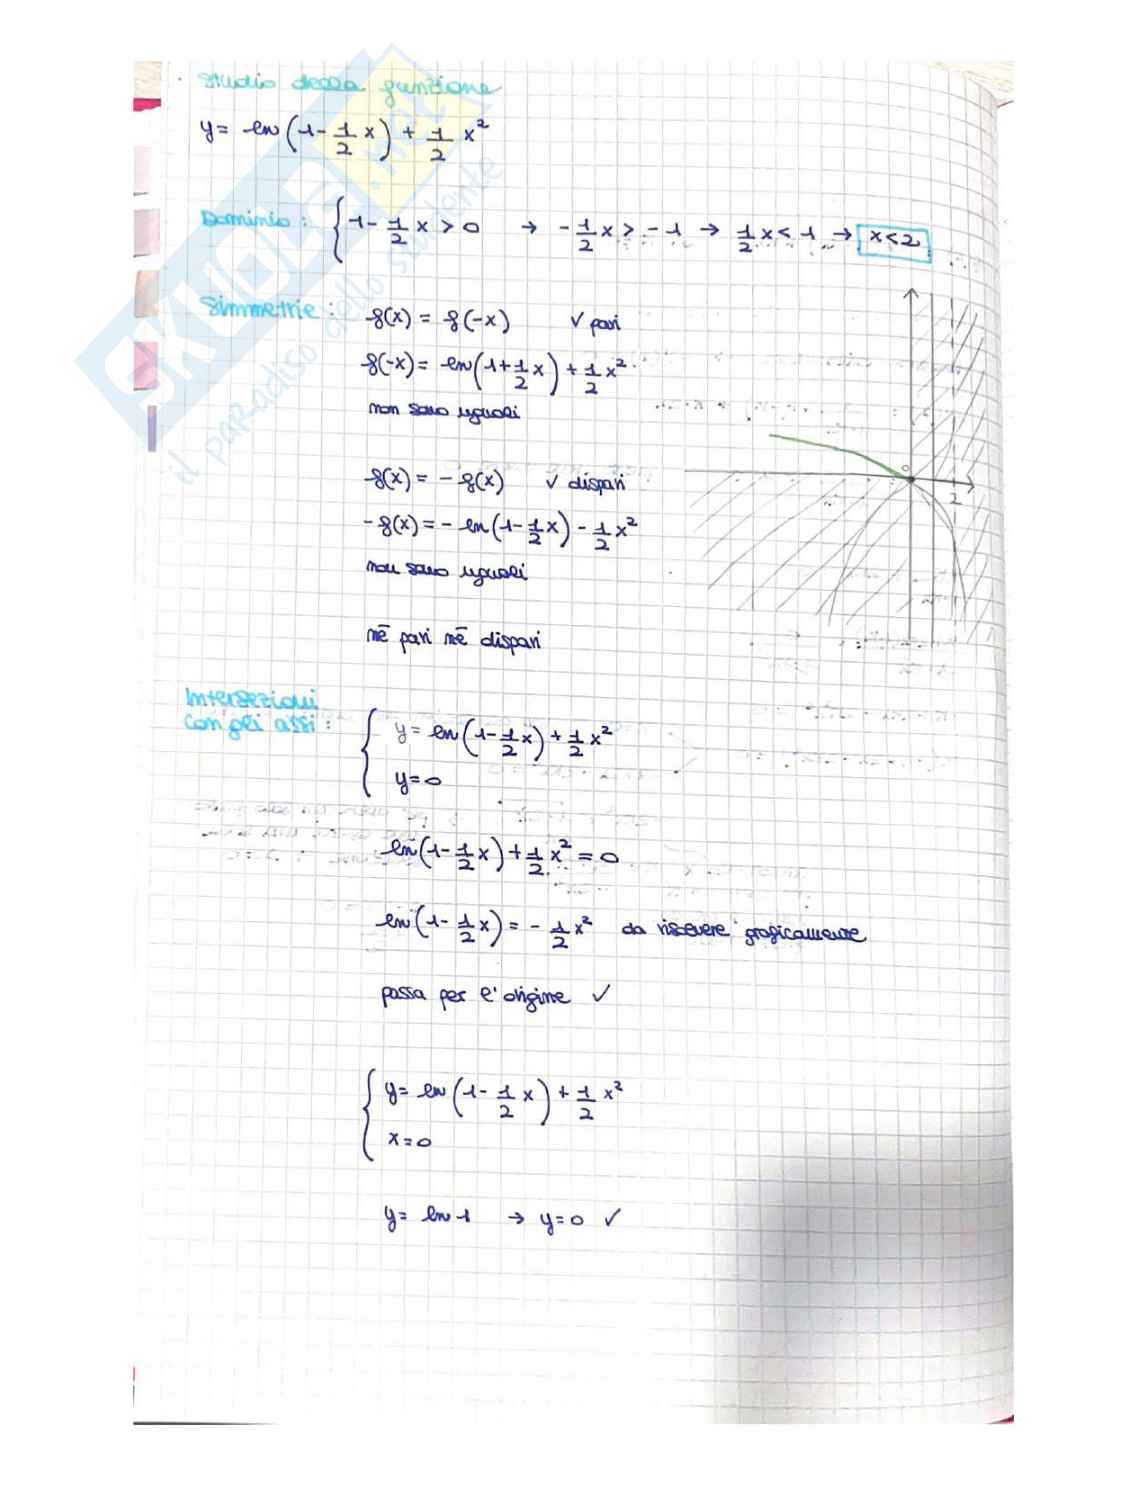 Studio della funzione
y = ln(1 - 1/2 x) + 1/2 x²
Dominio: { 1 - 1/2 x > 0 → - 1/2 x > - 1 → 1/2 x < 1 → x < 2
Simmetrie: f(x) = f(-x) √ pari
f(-x) = ln(1 + 1/2 x) + 1/2 x²
non sono uguali
f(x) = - f(x) √ dispari
- f(x) = - ln(1 - 1/2 x) - 1/2 x²
non sono uguali
nē pari nē dispari
Intersezioni
con gli assi: { y = ln(1 - 1/2 x) + 1/2 x²
y = 0
ln(1 - 1/2 x) + 1/2 x² = 0
ln(1 - 1/2 x) = - 1/2 x² da risolvere graficamente
passa per l'origine ✓
{ y = ln(1 - 1/2 x) + 1/2 x²
x = 0
y = ln 1 → y = 0 ✓
0
2
SKUOLA.net
il paradiso dello studente